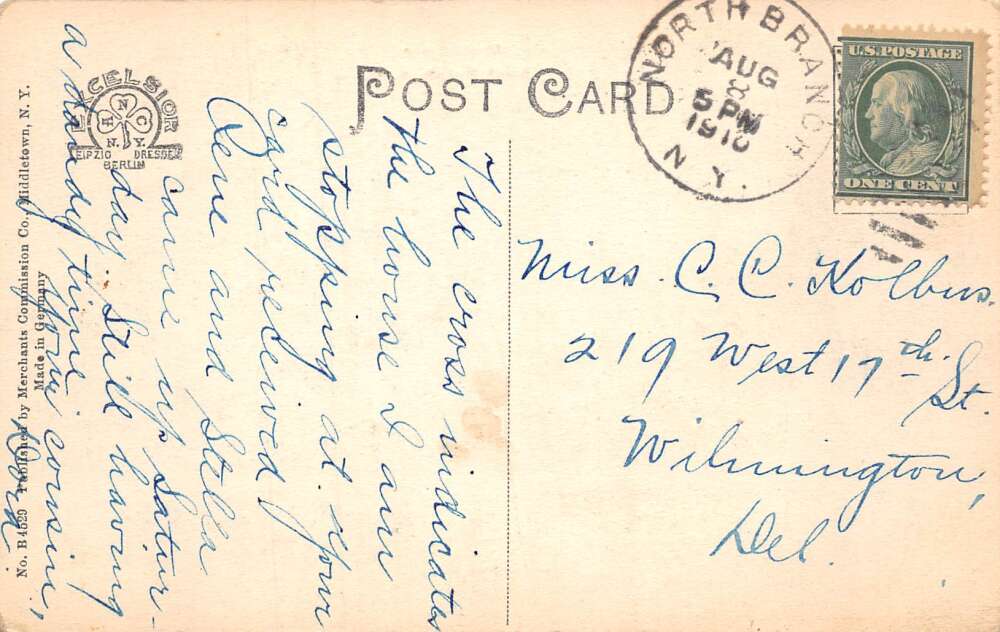 POST CARD
EXCELSIOR
N
H C
N.Y.
LEIPZIG DRESDEN
BERLIN
NORTH BRANCH
AUG
8
5 PM
1910
N.Y.
U.S. POSTAGE
ONE CENT
The cross indicates
the house I am
stopping at. Your
card received
Rene and Stella
came up Satur-
day. Still having
a dandy time
Your cousin,
Dora
Miss. C. C. Kolbus.
219 West 17th. St.
Wilmington,
Del.
No. B4529 Published by Merchants Commission Co., Middletown, N. Y.
Made in Germany